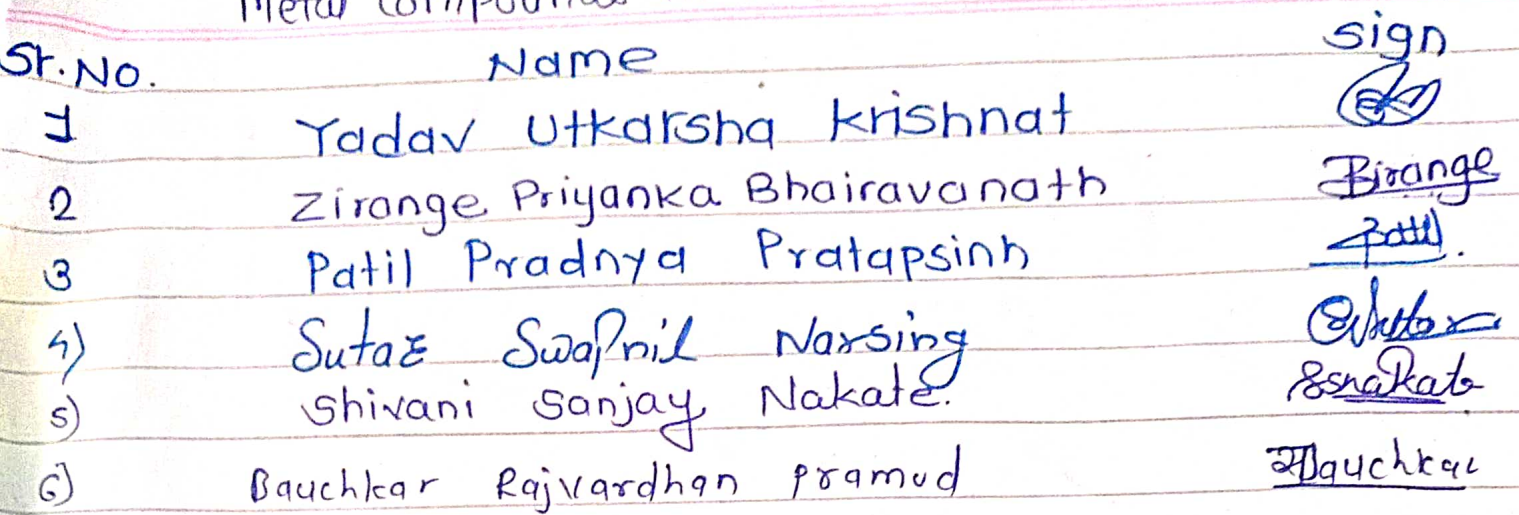 Sr. No. Name sign
1 Yadav Utkarsha krishnat
2 Zirange Priyanka Bhairavanath Birange
3 Patil Pradnya Pratapsinh Patil.
4) Sutar Swapnil Narsing
5) Shivani Sanjay Nakate. SSNakate
6) Bauchkar Rajvardhan Pramod